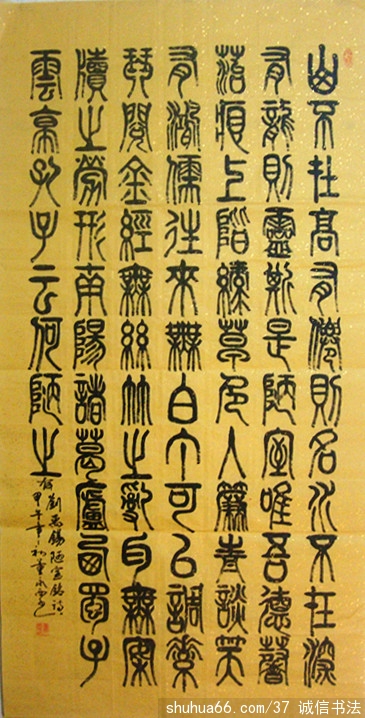 山不在高有僊則名水不在深
有龍則靈斯是陋室唯吾德馨
苔痕上階綠草色入簾青談笑
有鴻儒往來無白丁可以調素
琴閱金經無絲竹之亂耳無案
牘之勞形南陽諸葛廬西蜀子
雲亭孔子云何陋之
有劉禹錫陋室銘詩
甲午年
shuhua66.com/37 诚信书法